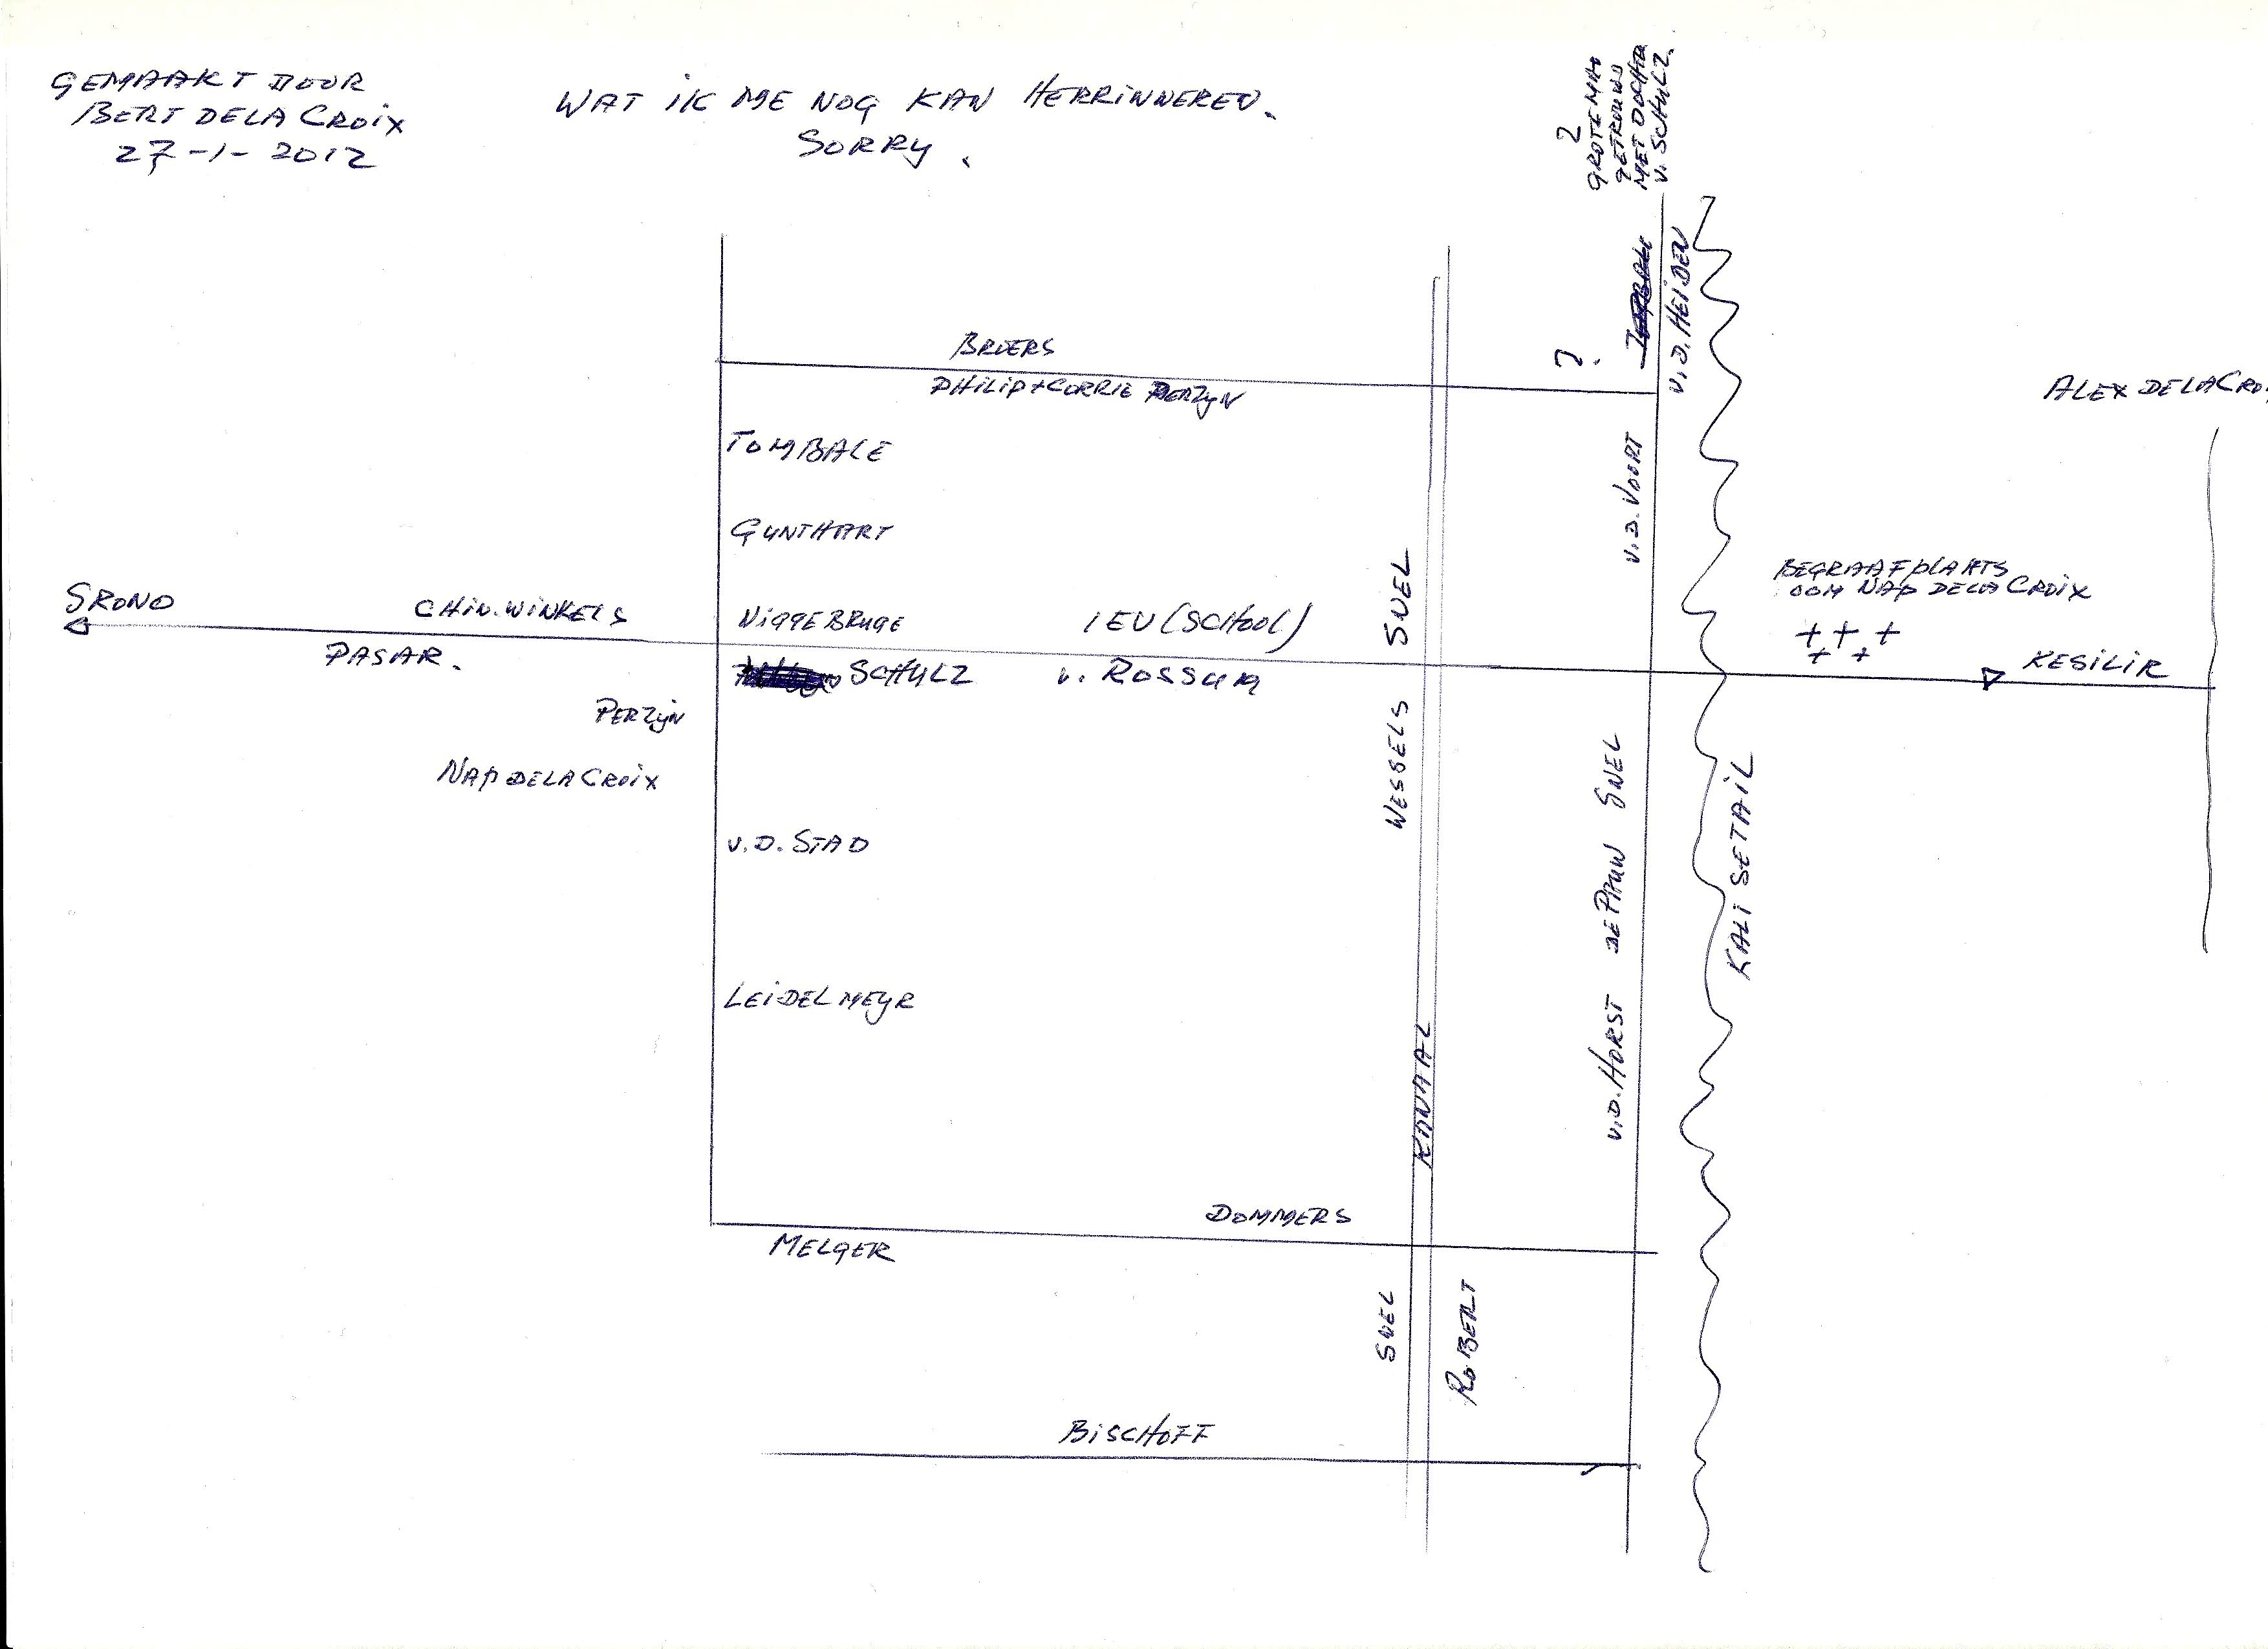 GEMAAKT DOOR
BERT DELACROIX
27-1-2012
WAT IK ME NOG KAN HERRINNEREN.
SORRY.
?
GROTE MAN
GETROUWD
MET DOCHTER
V. SCHULZ.
V.D. HEIDEN
BROERS
PHILIP+CORRIE PERZYN
?.
ALEX DELACROI
TOMBALE
V.D. VOORT
GUNTHART
SRONO
CHIN. WINKELS
NIGGEBRUGE
IEV (SCHOOL)
SNEL
BEGRAAFPLAATS
OOM NAP DELACROIX
PASAR.
SCHULZ
v. ROSSUM
KESILIR
PERZIJN
WESSELS
NAP DELACROIX
SNEL
KALI SETAIL
V.D. STAD
DE PAUW
LEIDELMEYR
V.D. HORST
KANAAL
DOMMERS
MELGER
SNEL
ROBERT
BISCHOFF